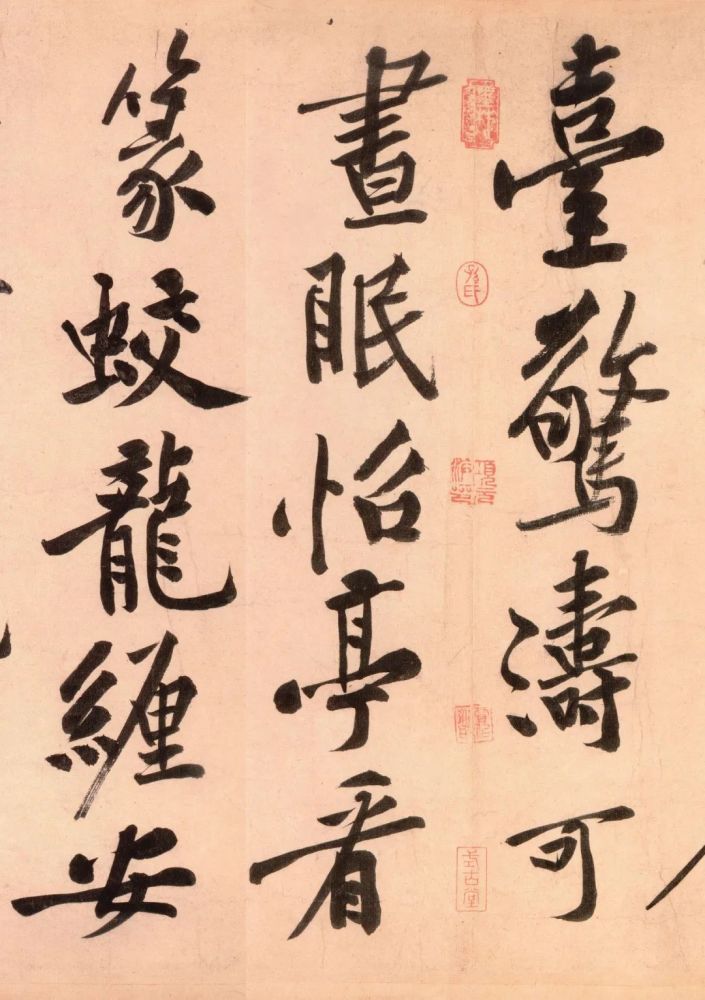 臺驚濤可
式古堂
晝眠怡亭看
篆蛟龍纏安